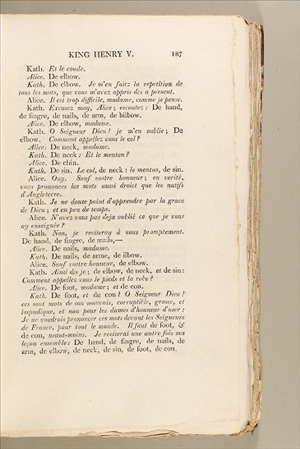 KING HENRY V. 187
Kath. Et le coude.
Alice. De elbow.
Kath. De elbow. Je m'en faitz la repetition de
tous les mots, que vous m'avez appris dès a present.
Alice. Il est trop difficile, madame, comme je pense.
Kath. Excusez moy, Alice; escoutez: De hand,
de fingre, de nails, de arm, de bilbow.
Alice. De elbow, madame.
Kath. O Seigneur Dieu! je m'en oublie; De
elbow. Comment appellez vous le col?
Alice. De neck, madame.
Kath. De neck: Et le menton?
Alice. De chin.
Kath. De sin. Le col, de neck: le menton, de sin.
Alice. Ouy. Sauf vostre honneur; en verité,
vous prononces les mots aussi droict que les natifs
d'Angleterre.
Kath. Je ne doute point d'apprendre par la grace
de Dieu; et en peu de temps.
Alice. N'avez vous pas deja oublié ce que je vous
ay enseignée?
Kath. Non, je reciteray à vous promptement.
De hand, de fingre, de mails,—
Alice. De nails, madame.
Kath. De nails, de arme, de ilbow.
Alice. Sauf vostre honneur, de elbow.
Kath. Ainsi dis je; de elbow, de neck, et de sin:
Comment appellez vous le pieds et la robe?
Alice. De foot, madame; et de con.
Kath. De foot, et de con? O Seigneur Dieu!
ces sont mots de son mauvais, corruptible, grosse, et
impudique, et non pour les dames d'honneur d'user:
Je ne voudrois prononcer ces mots devant les Seigneurs
de France, pour tout le monde. Il faut de foot, &
de con, neant-moins. Je reciterai une autre fois ma
leçon ensemble: De hand, de fingre, de nails, de
arm, de elbow, de neck, de sin, de foot, de con.